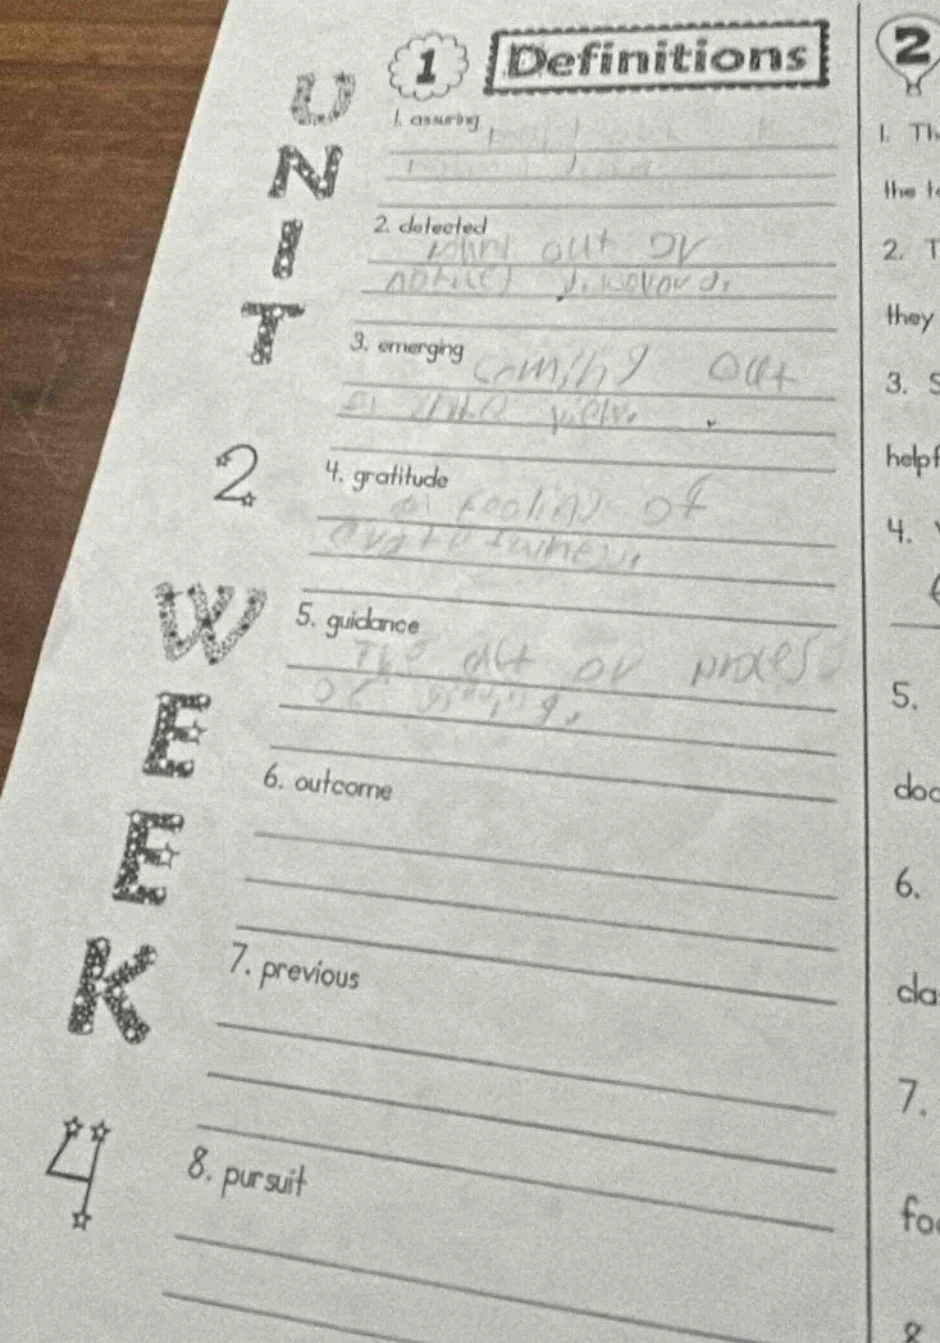 UNIT 2 WEEK 4
1 Definitions
1. assuring
2. detected
out or
3. emerging
coming out
view.
4. gratitude
a feeling of
5. guidance
The act or
of giving.
6. outcome
7. previous
8. pursuit
2
1. Th
the t
2. T
they
3. S
helpf
4.
5.
doc
6.
da
7.
fo
8